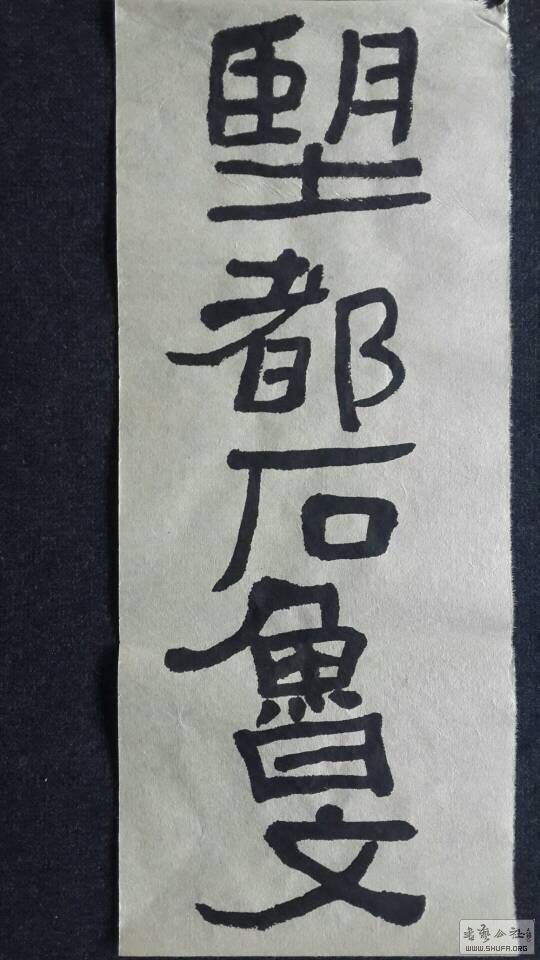 朢都石魯文
书艺公社
WWW.SHUFA.ORG